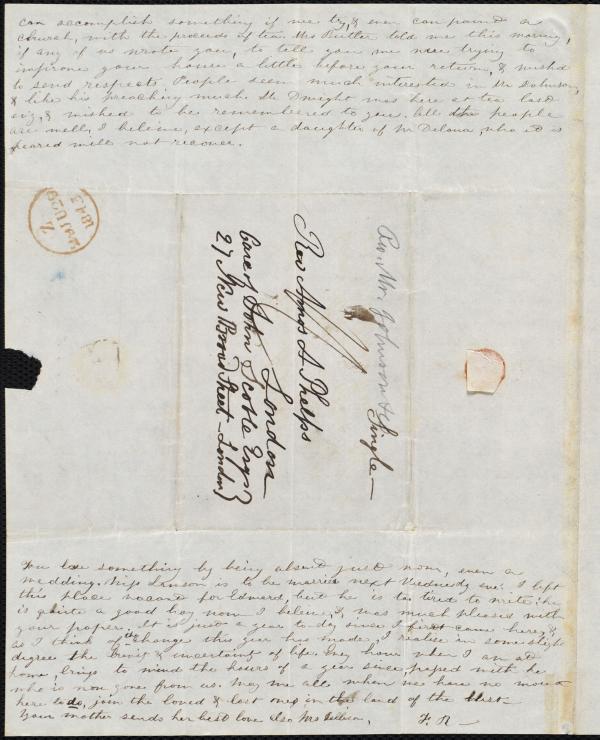 can accomplish something if we try, & even can paint a
church, with the proceeds of tea. Mrs Butler told me this morning,
if any of us wrote you, to tell you we were trying to
improve your house a little before your return, & wished
to send respects. People seem much interested in Mr Johnson,
& like his preaching much. Mr Dwight was here at tea last
evg, & wished to be remembered to you. All the people
are well, I believe, except a daughter of Mr , who it is
feared will not recover.
Z
JU 29
1843
Rev. Mr. Johnson &
Single—
Rev Amos A Phelps
London
Care of John Scoble Esqr
27 New Broad Street – London
You lose something by being absent just now, even a
wedding. Miss is to be married next Wednesdy eve. I left
this place vacant for Edward, but he is too tired to write. he
is quite a good boy now I believe, & was much pleased with
your paper. It is just a year to day since I first came here, &
as I think of the change this year has made, I realize in some slight
degree the & uncertainty of life. Every hour when I am at
home, brings to mind the hours of a year since, passed with he
who is now gone from us. May we all when we have no more
here to do, join the loved & lost ones in the land of the blest.
Your mother sends her best love also Mrs